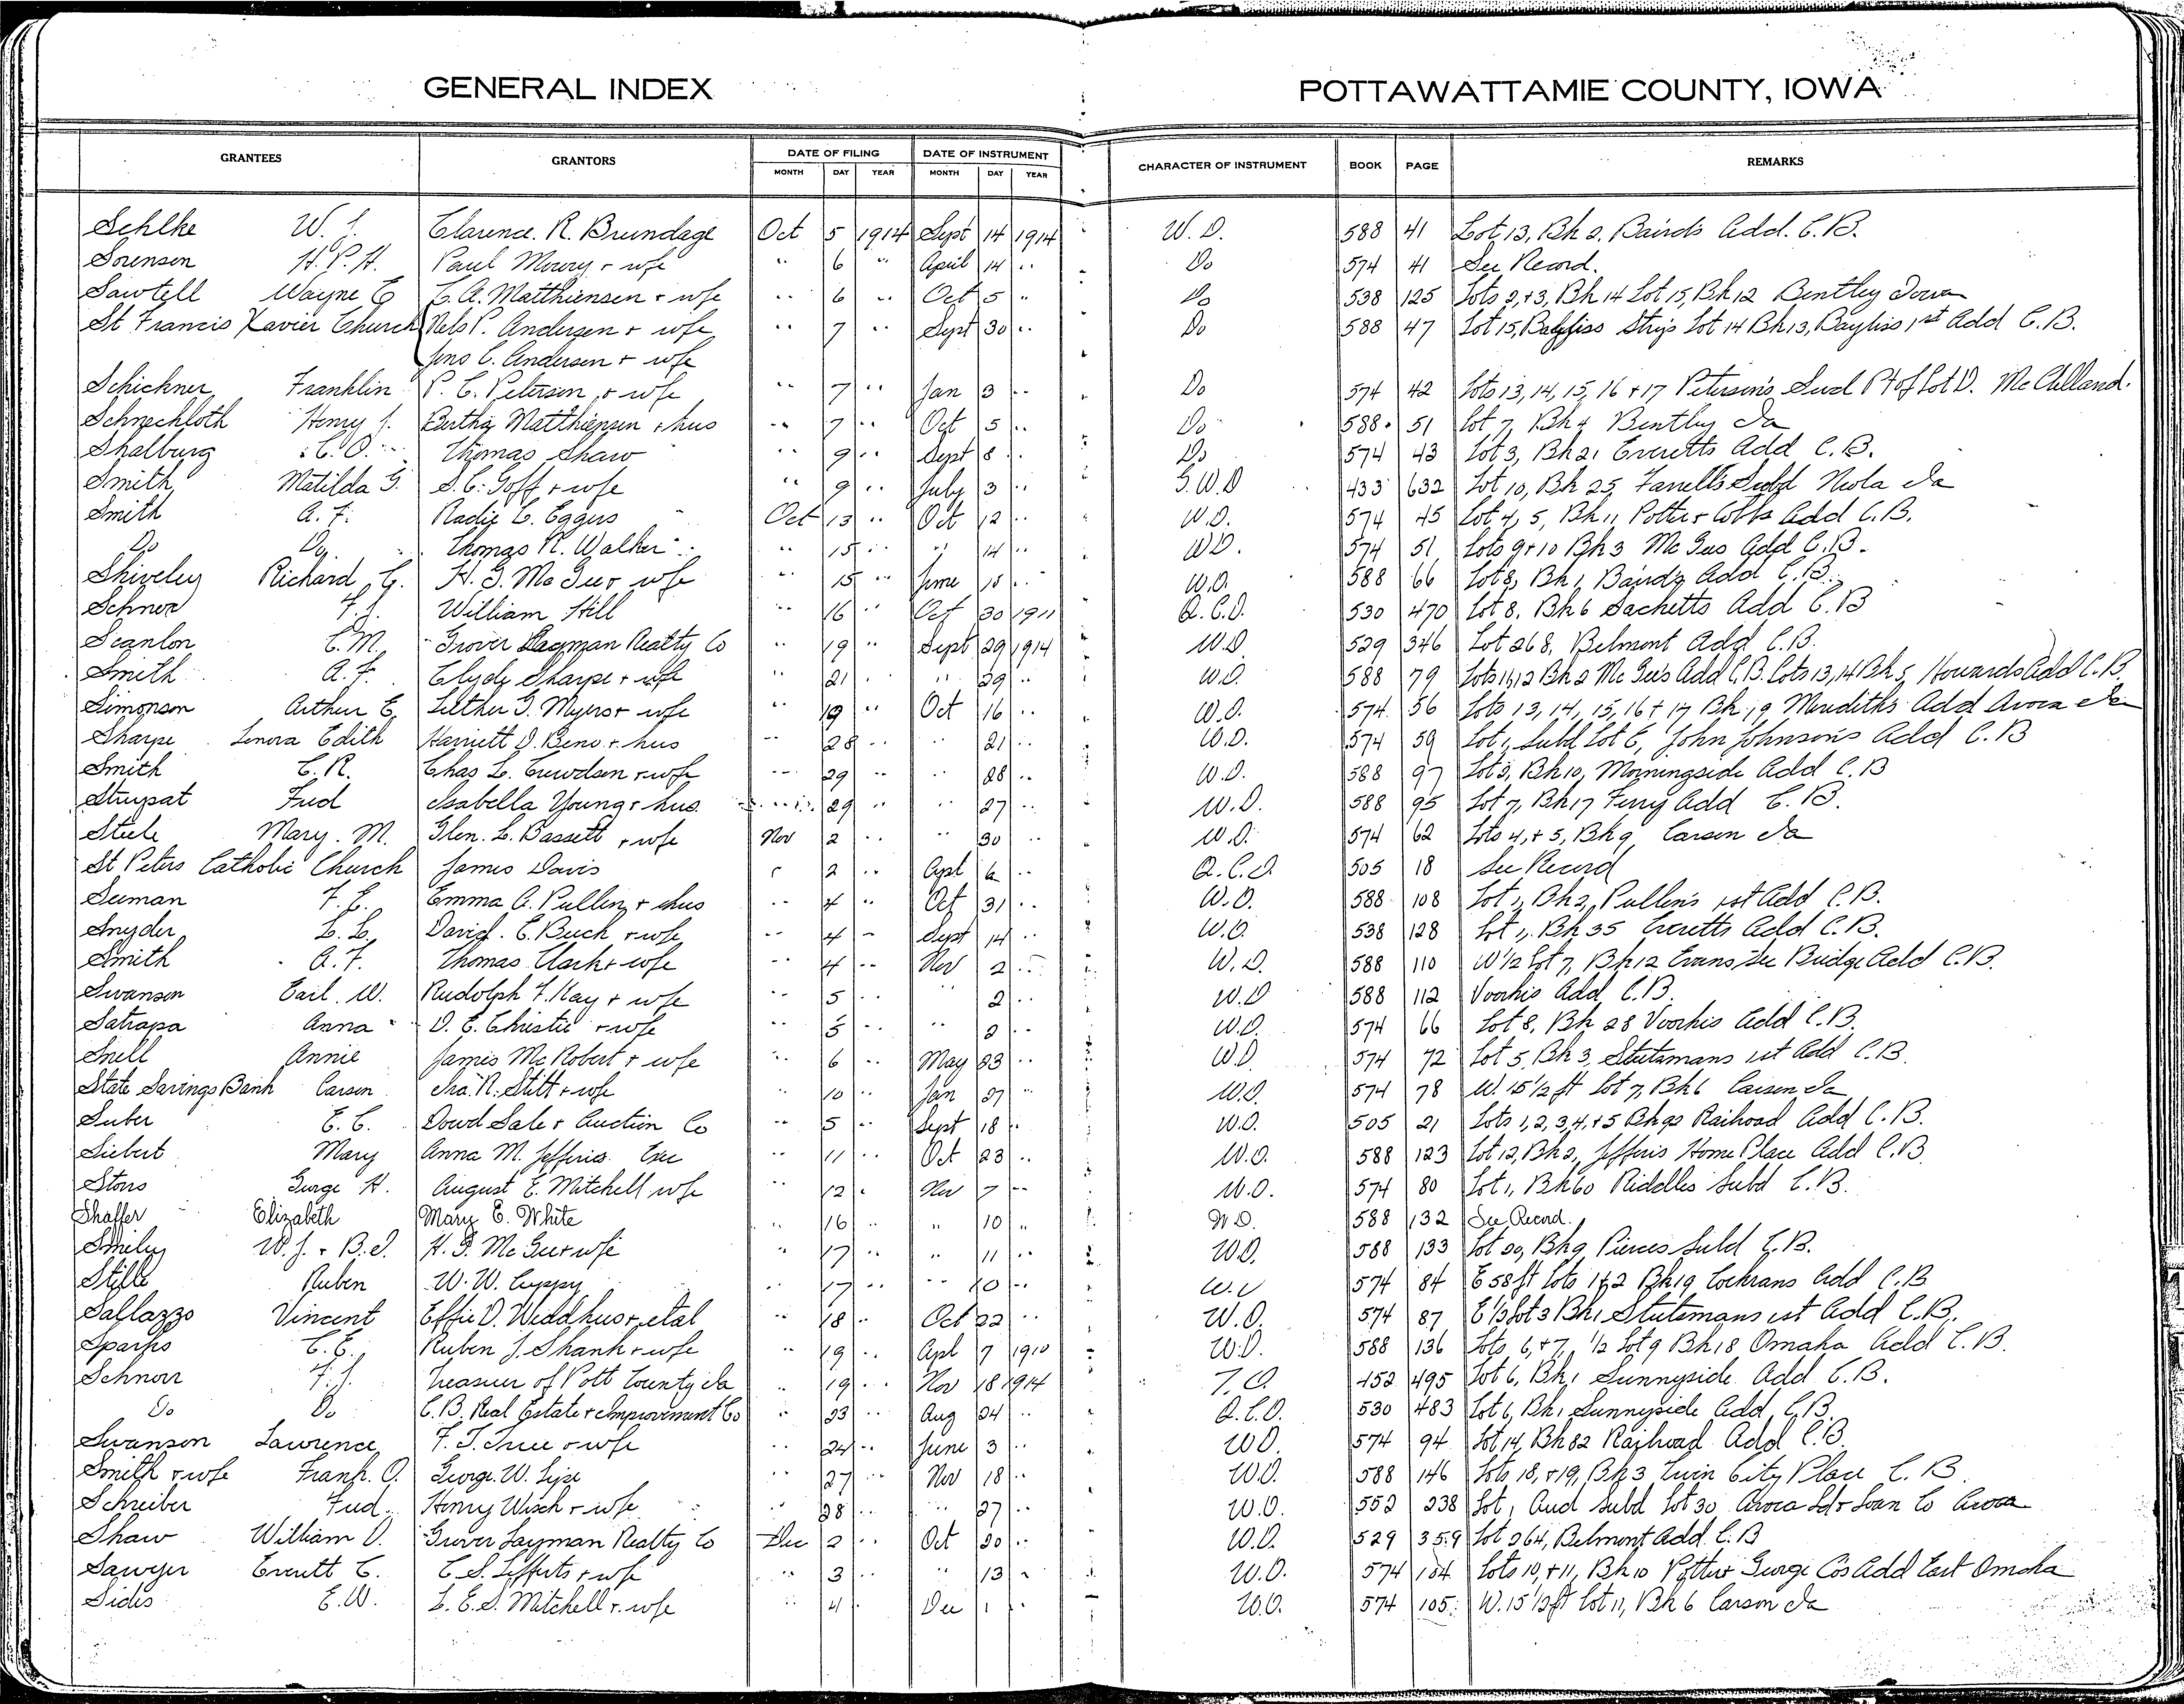 GENERAL INDEX POTTAWATTAMIE COUNTY, IOWA
GRANTEES GRANTORS DATE OF FILING DATE OF INSTRUMENT CHARACTER OF INSTRUMENT BOOK PAGE REMARKS
MONTH DAY YEAR MONTH DAY YEAR
Schlke W. J. Clarence. R. Brundage Oct 5 1914 Sept 14 1914 W. D. 588 41 Lot 13, Bk 2, Bairds Add. C.B.
Sorensen H.P.H. Paul Mowry + wfe " 6 " April 14 " Do 574 41 See Record.
Sawtell Wayne E L. A. Matthiensen + wfe " 6 " Oct 5 " Do 538 125 Lots 2, +3, Bk 14 Lot 15, Bk 12 Bentley Iowa
St Francis Xavier Church Nels P. Andersen + wfe " 7 " Sept 30 " Do 588 47 Lot 15, Bayliss Strip Lot 14 Bk 13, Bayliss 1st Add C.B.
Jens C. Andersen + wfe
Schickner Franklin P. C. Petersen + wfe " 7 " Jan 3 " Do 574 42 Lots 13, 14, 15, 16 +17 Petersons Subd Pt of Lot D. McClelland.
Schnechloth Henry J. Bertha Matthiensen + hus " 7 " Oct 5 " Do 588 51 Lot 7, Bk 4 Bentley Ia
Shalburg C. O. Thomas Shaw " 9 " Sept 8 " Do 574 43 Lot 3, Bk 21 Everetts Add C.B.
Smith Matilda G. S. C. Goff + wfe " 9 " July 3 " S.W.D 433 632 Lot 10, Bk 25, Farrells Subd Neola Ia
Smith A. F. Sadie L. Eggers Oct 13 " Oct 12 " W.D. 574 45 Lot 4, 5, Bk 11, Potter + Cobbs Add C.B.
Do Do. Thomas R. Walker " 15 " " 14 " W.D. 574 51 Lots 9+10 Bk 3 McGees Add C.B.
Shiveley Richard G. H. G. McGee + wfe " 15 " June 15 " W.D. 588 66 Lot 8, Bk 1, Bairds Add C.B.
Schnor F.J. William Hill " 16 " Oct 30 1911 Q.C.D. 530 470 Lot 8, Bk 6 Sacketts Add C.B
Scanlon C.M. Grover Layman Realty Co " 19 " Sept 29 1914 W.D. 529 346 Lot 268, Belmont Add C.B.
Smith A.F. Clyde Sharpe + wfe " 21 " " 29 " W.D. 588 79 Lots 11, 12 Bk 2 McGees Add C.B. Lots 13, 14 Bk 5, Howards Add C.B.
Simonson Arthur E Luther G. Myers + wfe " 19 " Oct 16 " W.D. 574 56 Lots 13, 14, 15, 16 + 17 Bk 19 Merediths Add Avoca Ia
Sharpe Lenora Edith Harriett D. Beno + hus " 28 " " 21 " W.D. 574 59 Lot 1, Subd Lot 6, John Johnsons Add C.B
Smith C.R. Chas L. Crewdson + wfe " 29 " " 28 " W.D. 588 97 Lot 3, Bk 10, Morningside Add C.B
Strupat Fred Isabella Young + hus " 29 " " 27 " W.D. 588 95 Lot 7, Bk 17 Ferry Add C.B.
Steele Mary. M. Glen. L. Bassett + wfe Nov 2 " " 30 " W.D. 574 62 Lots 4, + 5, Bk 9, Carson Ia
St Peters Catholic Church James Davis " 2 " Apl 6 " Q.C.D. 505 18 See Record
Seeman F.E. Emma A. Pullen + hus " 4 " Oct 31 " W.D. 588 108 Lot 1, Bk 2, Pullens 1st Add C.B.
Snyder L.L. David. E. Buck + wfe " 4 " Sept 14 " W.D. 538 128 Lot 1, Bk 35 Everetts Add C.B.
Smith A.F. Thomas Clark + wfe " 4 " Nov 2 " W.D. 588 110 W 1/2 Lot 7, Bk 12 Evans 2ec Bridge Add C.B.
Swanson Carl. W. Rudolph F. Kay + wfe " 5 " " 2 " W.D 588 112 Voorhis Add C.B.
Satrapa Anna D. E. Christie + wfe " 5 " " 2 " W.D. 574 66 Lot 8, Bk 28 Voorhis Add C.B.
Snell Annie James McRobert + wfe " 6 " May 23 " W.D. 574 72 Lot 5, Bk 3, Stutsmans 1st Add C.B.
State Savings Bank Carson Ira. R. Stitt + wfe " 10 " Jan 27 " W.D. 574 78 W. 15 1/2 ft Lot 7, Bk 6 Carson Ia
Suber E. C. Dowd Sale + Auction Co " 5 " Sept 18 " W.D. 505 21 Lots 1, 2, 3, 4, +5 Bk 92 Railroad Add C.B.
Siebert Mary Anna M. Jefferis Exc " 11 " Oct 23 " W.D. 588 123 Lot 12, Bk 2, Jefferis Home Place Add C.B
Stons George H. August E. Mitchell wfe " 12 " Nov 7 " W.D. 574 80 Lot 1, Bk 60 Riddells Subd C.B.
Shaffer Elizabeth Mary E. White " 16 " " 10 " W D. 588 132 See Record.
Smiley W.J. + B.I. H. G. McGee + wfe " 17 " " 11 " W.D. 588 133 Lot 20, Bk 9 Pierces Subd C.B.
Stille Ruben W. W. Cuppy " 17 " " 10 " W.D 574 84 E 58 ft Lots 1 & 2 Bk 19 Cochrans Add C.B
Sallazzo Vincent Effie D. Wedd hus + etal " 18 " Oct 22 " W.D. 574 87 E 1/2 Lot 3 Bk 1 Stutsmans 1st Add C.B.
Sparks C.E. Ruben J. Shank + wfe " 19 " Apl 7 1910 W.D. 588 136 Lots 6, + 7, 1/2 Lot 9 Bk 18 Omaha Add C.B.
Schnorr F.J. Treasurer of Pott County Ia " 19 " Nov 18 1914 T.D. 452 495 Lot 6, Bk 1 Sunnyside Add C.B.
Do Do C.B. Real Estate + Improvement Co " 23 " Aug 24 " Q.C.D. 530 483 Lot 6, Bk 1 Sunnyside Add C.B.
Swanson Lawrence F. J. True + wfe " 24 " June 3 " W.D. 574 94 Lot 14, Bk 82 Railroad Add C.B
Smith + wfe Frank. O. George. W. Lipe " 27 " Nov 18 " W.D. 588 146 Lots 18, +19, Bk 3 Twin City Place C.B.
Schreiber Fred. Henry Wisch + wfe " 28 " " 27 " W.D. 552 238 Lot 1 Aud Subd Lot 30 Avoca Ld + Loan Co Avoca
Shaw William O. Grover Layman Realty Co Dec 2 " Oct 20 " W.D. 529 359 Lot 264, Belmont Add C.B
Sawyer Everett C. E. S. Lefferts + wfe " 3 " " 13 " W.D. 574 104 Lots 10, + 11, Bk 10 Potter George Cos Add East Omaha
Sides E.W. L. E. S. Mitchell + wfe " 4 " Dec 1 " W.D. 574 105 W. 15 1/2 ft Lot 11, Bk 6 Carson Ia